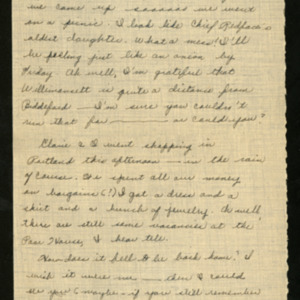 we came up – saaaaaa we went
on a picnic. I look like Chief Redface's
oldest daughter. What a mess! I'll
be peeling just like an onion by
Friday. Ah well, I'm grateful that
Willimansett is quite a distance from
Biddeford — I'm sure you couldn't
run that far — or could you?
Claire & I went shopping in
Portland this afternoon — in the rain
of course. We spent all our money
on bargains (?) I got a dress and a
skirt and a bunch of jewelry. Oh well,
there are still some vacancies at the
Poor House, I hear tell.
How does it feel to be back home? I
wish it were me — then I could
see you & maybe – if you still remember